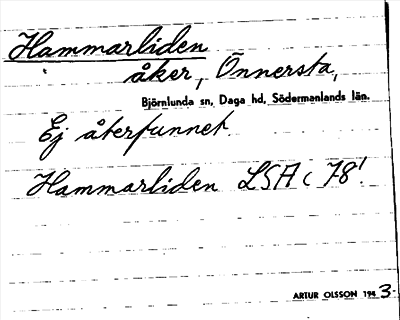 Hammarliden
åker, Önnersta,
Björnlunda sn, Daga hd, Södermanlands län.
Ej återfunnet.
Hammarliden LSA C 78!
ARTUR OLSSON 1943.